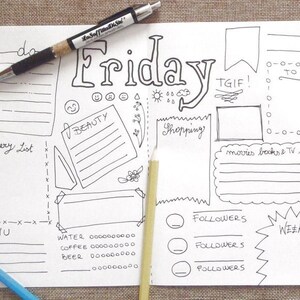 da
Friday
TGIF!
TO
BEAUTY
Shopping!
movies books & TV
WATER
COFFEE
BEER
FOLLOWERS
FOLLOWERS
FOLLOWERS